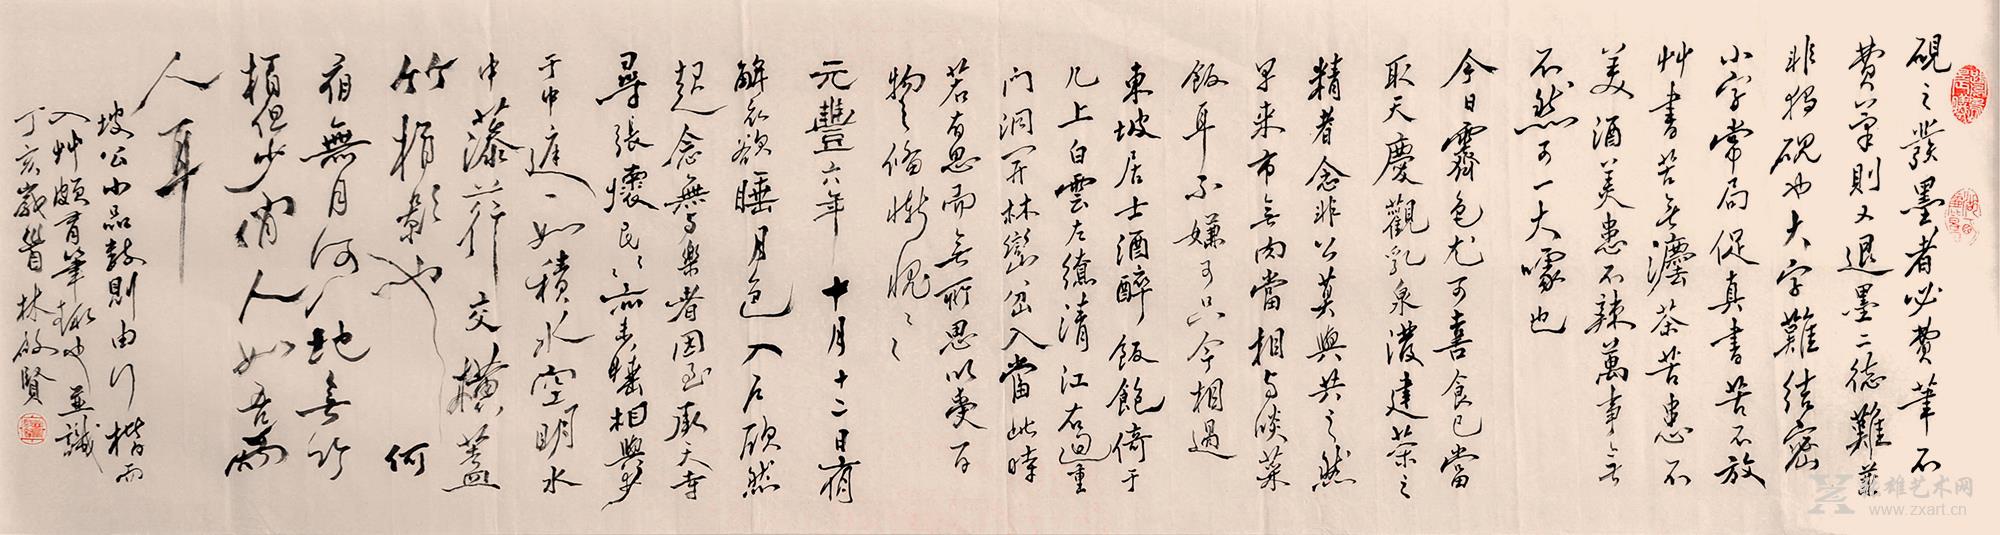 硯之發墨者必費筆不
費筆則又退墨二德難兼
非獨硯也大字難結密
小字常局促真書苦不放
艸書苦無灋茶苦患不
美酒美患不辣萬事無
不然可一大噱也
今日霽色尤可喜食已當
取天慶觀乳泉潑建茶之
精者念非公莫與共之然
早来市無肉當相與啖菜
飯耳不嫌可只今相過
東坡居士酒醉飯飽倚于
几上白雲左繚清江右洄重
门洞开林巒岔入當此時
若有思而無所思以受万
物之备慚愧之
元豐六年十月十二日夜
解衣欲睡月色入户欣然
起念無与樂者因至承天寺
尋張懷民民亦未寢相與步
于中庭庭下如積水空明水
中藻荇交橫蓋
竹柏影也何
夜無月何地無竹
柏但少閒人如吾兩
人耳
坡公小品數則由行楷而
入艸頗有筆趣也並識
丁亥歲首林啟賢
雄艺术网
www.zxart.cn